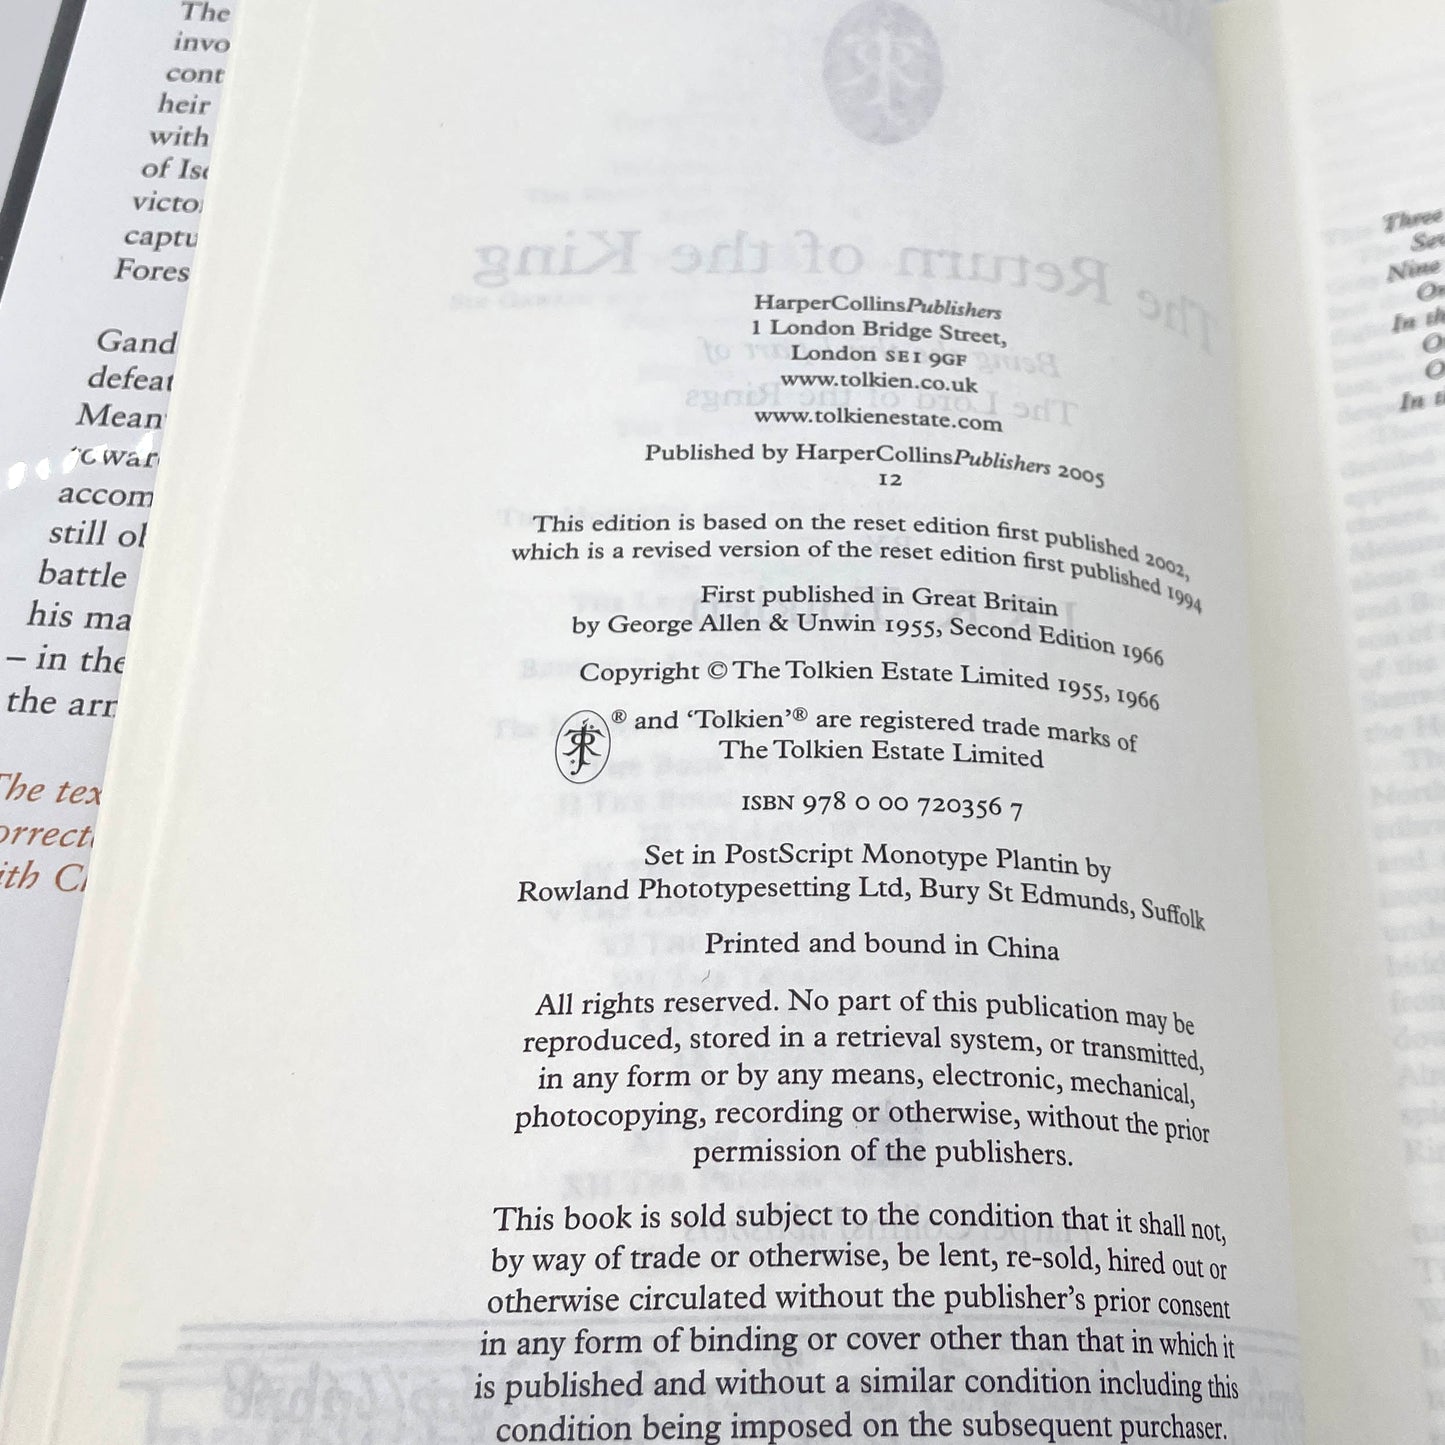 The
invo
cont
heir
with
of Is
victo
captu
Fores
Gand
defeat
Mean
war
accom
still ob
battle
his ma
– in the
the arr
The tex
orrect
ith C
The Return of the King
Being the third part of
The Lord of the Rings
HarperCollinsPublishers
1 London Bridge Street,
London SE1 9GF
www.tolkien.co.uk
www.tolkienestate.com
Published by HarperCollinsPublishers 2005
12
This edition is based on the reset edition first published 2002,
which is a revised version of the reset edition first published 1994
First published in Great Britain
by George Allen & Unwin 1955, Second Edition 1966
Copyright © The Tolkien Estate Limited 1955, 1966
® and ‘Tolkien’® are registered trade marks of
The Tolkien Estate Limited
ISBN 978 0 00 720356 7
Set in PostScript Monotype Plantin by
Rowland Phototypesetting Ltd, Bury St Edmunds, Suffolk
Printed and bound in China
All rights reserved. No part of this publication may be
reproduced, stored in a retrieval system, or transmitted,
in any form or by any means, electronic, mechanical,
photocopying, recording or otherwise, without the prior
permission of the publishers.
This book is sold subject to the condition that it shall not,
by way of trade or otherwise, be lent, re-sold, hired out or
otherwise circulated without the publisher’s prior consent
in any form of binding or cover other than that in which it
is published and without a similar condition including this
condition being imposed on the subsequent purchaser.
Three
Sev
Nine
On
In th
O
O
In t